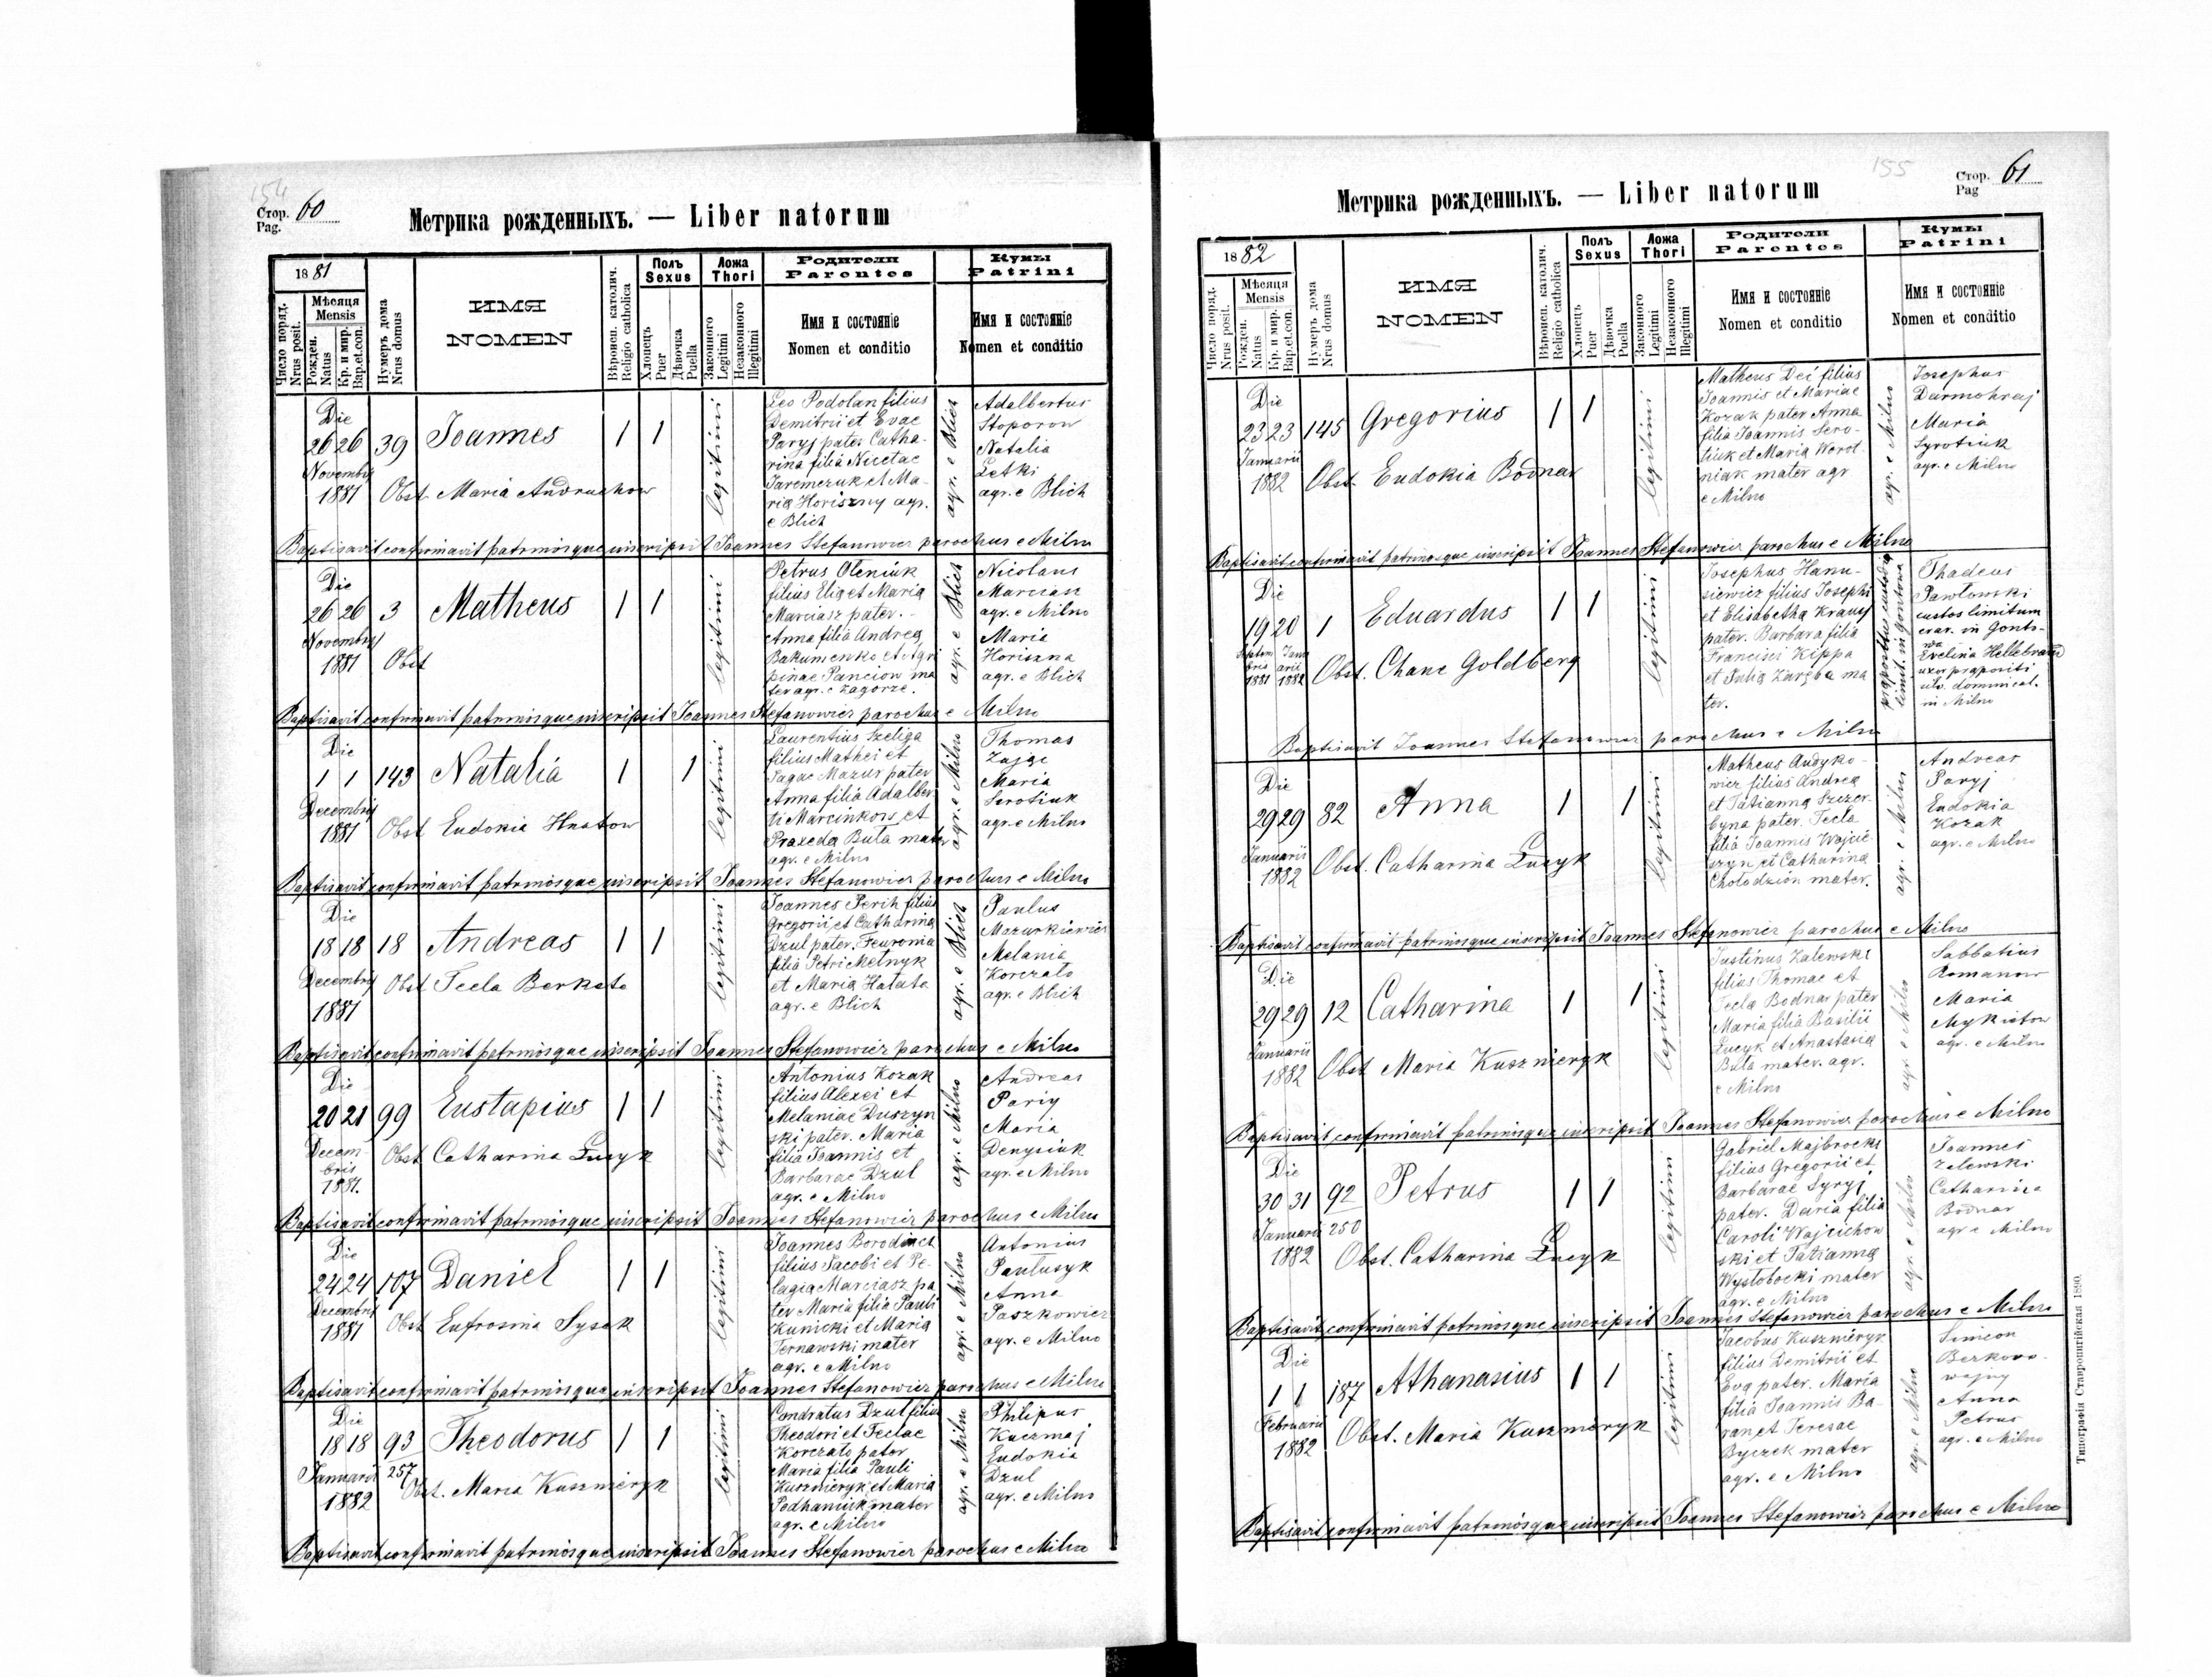 154
Стор. 60
Pag.
Метрика рожденныхъ. — Liber natorum
1881
Число поряд.
Nrus posit.
Мѣсяца
Mensis
Рожден.
Natus
Кр. и мир.
Bap.et.con.
Нумеръ дома
Nrus domus
ИМЯ
NOMEN
Вѣроиспов. католич.
Religio catholica
Полъ
Sexus
Хлопецъ
Puer
Дѣвочка
Puella
Ложа
Thori
Законного
Legitimi
Незаконного
Illegitimi
Родители
Parentes
Имя и состояніе
Nomen et conditio
Кумы
Patrini
Имя и состояніе
Nomen et conditio
Die
26 26 39 Joannes 1 1
Novembris
1881 Obst. Maria Andruchow
legitimi
Leo Podolan filius
Demitrii et Evae
Paryj pater Catha-
rina filia Nicetae
Jaremczuk et Ma-
ria Horiszny agr.
e Blich
agr. e Blich
Adalbertus
Stoporow
Natalia
Letki
agr. e Blich
Baptisavit confirmavit patrinosque inscripsit Joannes Stefanowicz parochus e Milno
Die
26 26 3 Matheus 1 1
Novembris
1881 Obst
legitimi
Petrus Oleniuk
filius Eliae et Maria
Marciasz pater.
Anna filia Andrea
Bakumenko et Agri
pinae Panciow ma
ter agr. e Zagorze.
agr. e Blich
Nicolaus
Marciasz
agr. e Milno
Maria
Horiszna
agr. e Blich
Baptisavit confirmavit patrinosque inscripsit Joannes Stefanowicz parochus e Milno
Die
1 1 143 Natalia 1 1
Decembris
1881 Obst Eudokia Hnatow
legitimi
Laurentius Szeliga
filius Mathei et
Mazur pater
Anna filia Adalber
ti Marcinkow et
Praxeda Buta mater
agr. e Milno
agr. e Milno
Thomas
Zajac
Maria
Serotiuk
agr. e Milno
Baptisavit confirmavit patrinosque inscripsit Joannes Stefanowicz parochus e Milno
Die
18 18 18 Andreas 1 1
Decembris
1881
Obst Tecla Berkata
legitimi
Joannes Perih filius
Gregorii et Catharina
Dzul pater. Feuronia
filia Petri Melnyk
et Maria Halata
agr. e Blich
agr. e Blich
Paulus
Mazurkiewicz
Melania
Korczalo
agr. e Blich
Baptisavit confirmavit patrinosque inscripsit Joannes Stefanowicz parochus e Milno
Die
20 21 99 Eustapius 1 1
Decem-
bris
1881.
Obst Catharina Lucyk
legitimi
Antonius Kozak
filius Alexei et
Melaniae Duszyn
ski pater. Maria
filia Joannis et
Barbarae Dzul
agr. e Milno
agr. e Milno
Andreas
Pariy
Maria
Denysiuk
agr. e Milno
Baptisavit confirmavit patrinosque inscripsit Joannes Stefanowicz parochus e Milno
Die
24 24 107 Daniel 1 1
Decembris
1881
Obst Eufrosina Sysak
legitimi
Joannes Borodinez
filius Jacobi et Pe-
lagia Marciasz pa
ter Maria filia Pauli
Kunicki et Maria
Ternawski mater
agr. e Milno
agr. e Milno
Antonius
Pawlusyk
Anna
Paszkowicz
agr. e Milno
Baptisavit confirmavit patrinosque inscripsit Joannes Stefanowicz parochus e Milno
Die
18 18 93 Theodorus 1 1
Januarii 257
1882 Obst. Maria Kuszmeryk
legitimi
Condratus Dzul filius
Theodori et Teclae
Korczalo pater
Maria filia Pauli
Kuszmieryk et Maria
Podhaniuk mater
agr. e Milno
agr. e Milno
Philipus
Kuczmaj
Eudokia
Dzul
agr. e Milno
Baptisavit confirmavit patrinosque inscripsit Joannes Stefanowicz parochus e Milno
155
Стор. 61
Pag
Метрика рожденныхъ. — Liber natorum
1882
Число поряд.
Nrus posit.
Мѣсяца
Mensis
Рожден.
Natus
Кр. и мир.
Bap.et.con.
Нумеръ дома
Nrus domus
ИМЯ
NOMEN
Вѣроиспов. католич.
Religio catholica
Полъ
Sexus
Хлопецъ
Puer
Дѣвочка
Puella
Ложа
Thori
Законного
Legitimi
Незаконного
Illegitimi
Родители
Parentes
Имя и состояніе
Nomen et conditio
Кумы
Patrini
Имя и состояніе
Nomen et conditio
Die
23 23 145 Gregorius 1 1
Januarii
1882 Obst. Eudokia Bodnar
legitimi
Matheus Dei filius
Joannis et Mariae
Kozak pater Anna
filia Joannis Sero-
tiuk et Maria Worot-
niak mater agr
e Milno
agr. e Milno
Josephus
Darmohraj
Maria
Syrotiuk
agr. e Milno
Baptisavit confirmavit patrinosque inscripsit Joannes Stefanowicz parochus e Milno
Die
19 20 1 Eduardus 1 1
Septem Janu
bris arii
1881 1882
Obst. Chane Goldberg
legitimi
Josephus Hanu-
siewicz filius Josephi
et Elisabetha Krauss
pater. Barbara filia
Francisci Kippa
et Julia Zaręba ma
ter.
praepositus custodia
limit. in Gontowa
Thadeus
Pawlowski
custos limitum
erar. in Gonto-
wa
Evelina Hellebrand
uxor praepositi
silv. dominical.
in Milno
Baptisavit Joannes Stefanowicz parochus e Milno
Die
29 29 82 Anna 1 1
Januarii
1882 Obst. Catharina Lucyk
legitimi
Matheus Audyko-
wicz filius Andrea
et Tatianna Szczer-
byna pater. Tecla
filia Joannis Wojcie-
szyn et Catharina
Cholodzion mater.
agr. e Milno
Andreas
Paryj
Eudokia
Kozak
agr. e Milno
Baptisavit confirmavit patrinosque inscripsit Joannes Stefanowicz parochus e Milno
Die
29 29 12 Catharina 1 1
Januarii
1882 Obst Maria Kuszmieryk
legitimi
Justinus Zalewski
filius Thomae et
Tecla Bodnar pater
Maria filia Basilii
Lucyk et Anastasia
Buta mater. agr.
e Milno
agr. e Milno
Sabbatius
Romanow
Maria
Mykietow
agr. e Milno
Baptisavit confirmavit patrinosque inscripsit Joannes Stefanowicz parochus e Milno
Die
30 31 92 Petrus 1 1
Januarii 250
1882 Obst. Catharina Lucyk
legitimi
Gabriel Majbrocki
filius Gregorii et
Barbarae Syryj
pater. Daria filia
Caroli Wajcichow
ski et Tatianna
Wyslobocki mater
agr. e Milno
agr. e Milno
Joannes
Zalewski
Catharina
Bodnar
agr e Milno
Baptisavit confirmavit patrinosque inscripsit Joannes Stefanowicz parochus e Milno
Die
1 1 187 Athanasius 1 1
Februarii
1882 Obst. Maria Kuszmeryk
legitimi
Jacobus Kuszmieryk
filius Demitrii et
Eva pater. Maria
filia Joannis Ba-
ran et Teresae
Byczek mater
agr. e Milno
agr. e Milno
Simeon
Berkowo-
Anna
Petrus
agr. e Milno
Baptisavit confirmavit patrinosque inscripsit Joannes Stefanowicz parochus e Milno
Типографія Ставропигійская 1890.